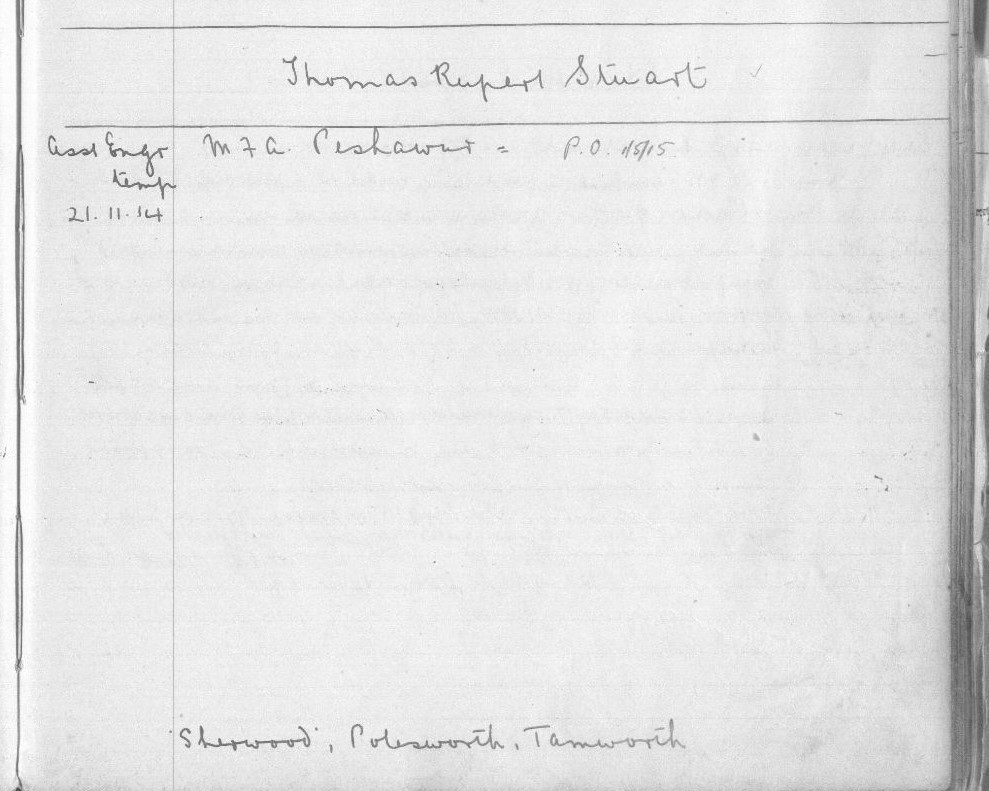 Thomas Rupert Stuart ✓
Asst Engr M F A. Peshawur = P.O. 1/5/15
temp
21.11.14
'Sherwood', Polesworth, Tamworth